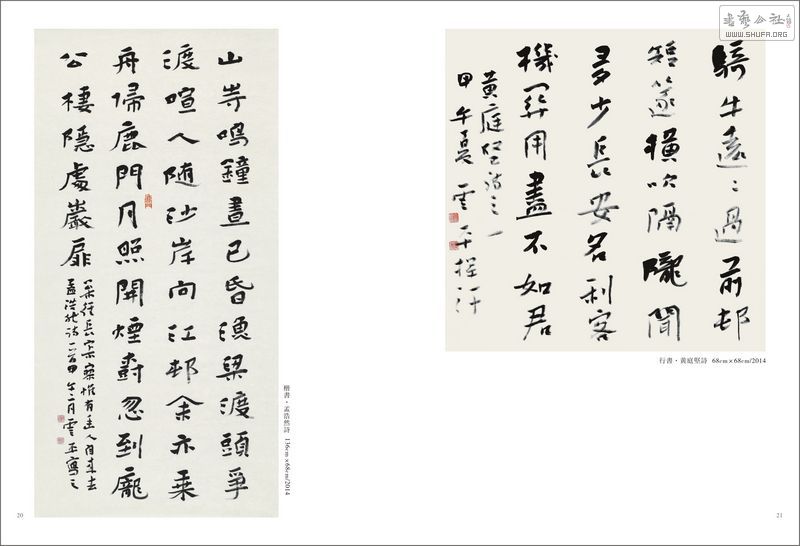 書藝公社
WWW.SHUFA.ORG
山寺鳴鐘晝已昏漁梁渡頭爭
渡喧人隨沙岸向江邨余亦乗
舟帰鹿門月照開煙樹忽到龐
公棲隱處巖扉
徑長寂寥惟有幽人自来去
孟浩然詩一首甲午二月雲平寫之
楷書·孟浩然詩 136cm×68cm/2014
20
騎牛遠〻過前邨
短篴横吹隔隴聞
多少長安名利客
機關用盡不如君
黃庭堅詩之一
甲午夏雲平揮汗
行書·黃庭堅詩 68cm×68cm/2014
21